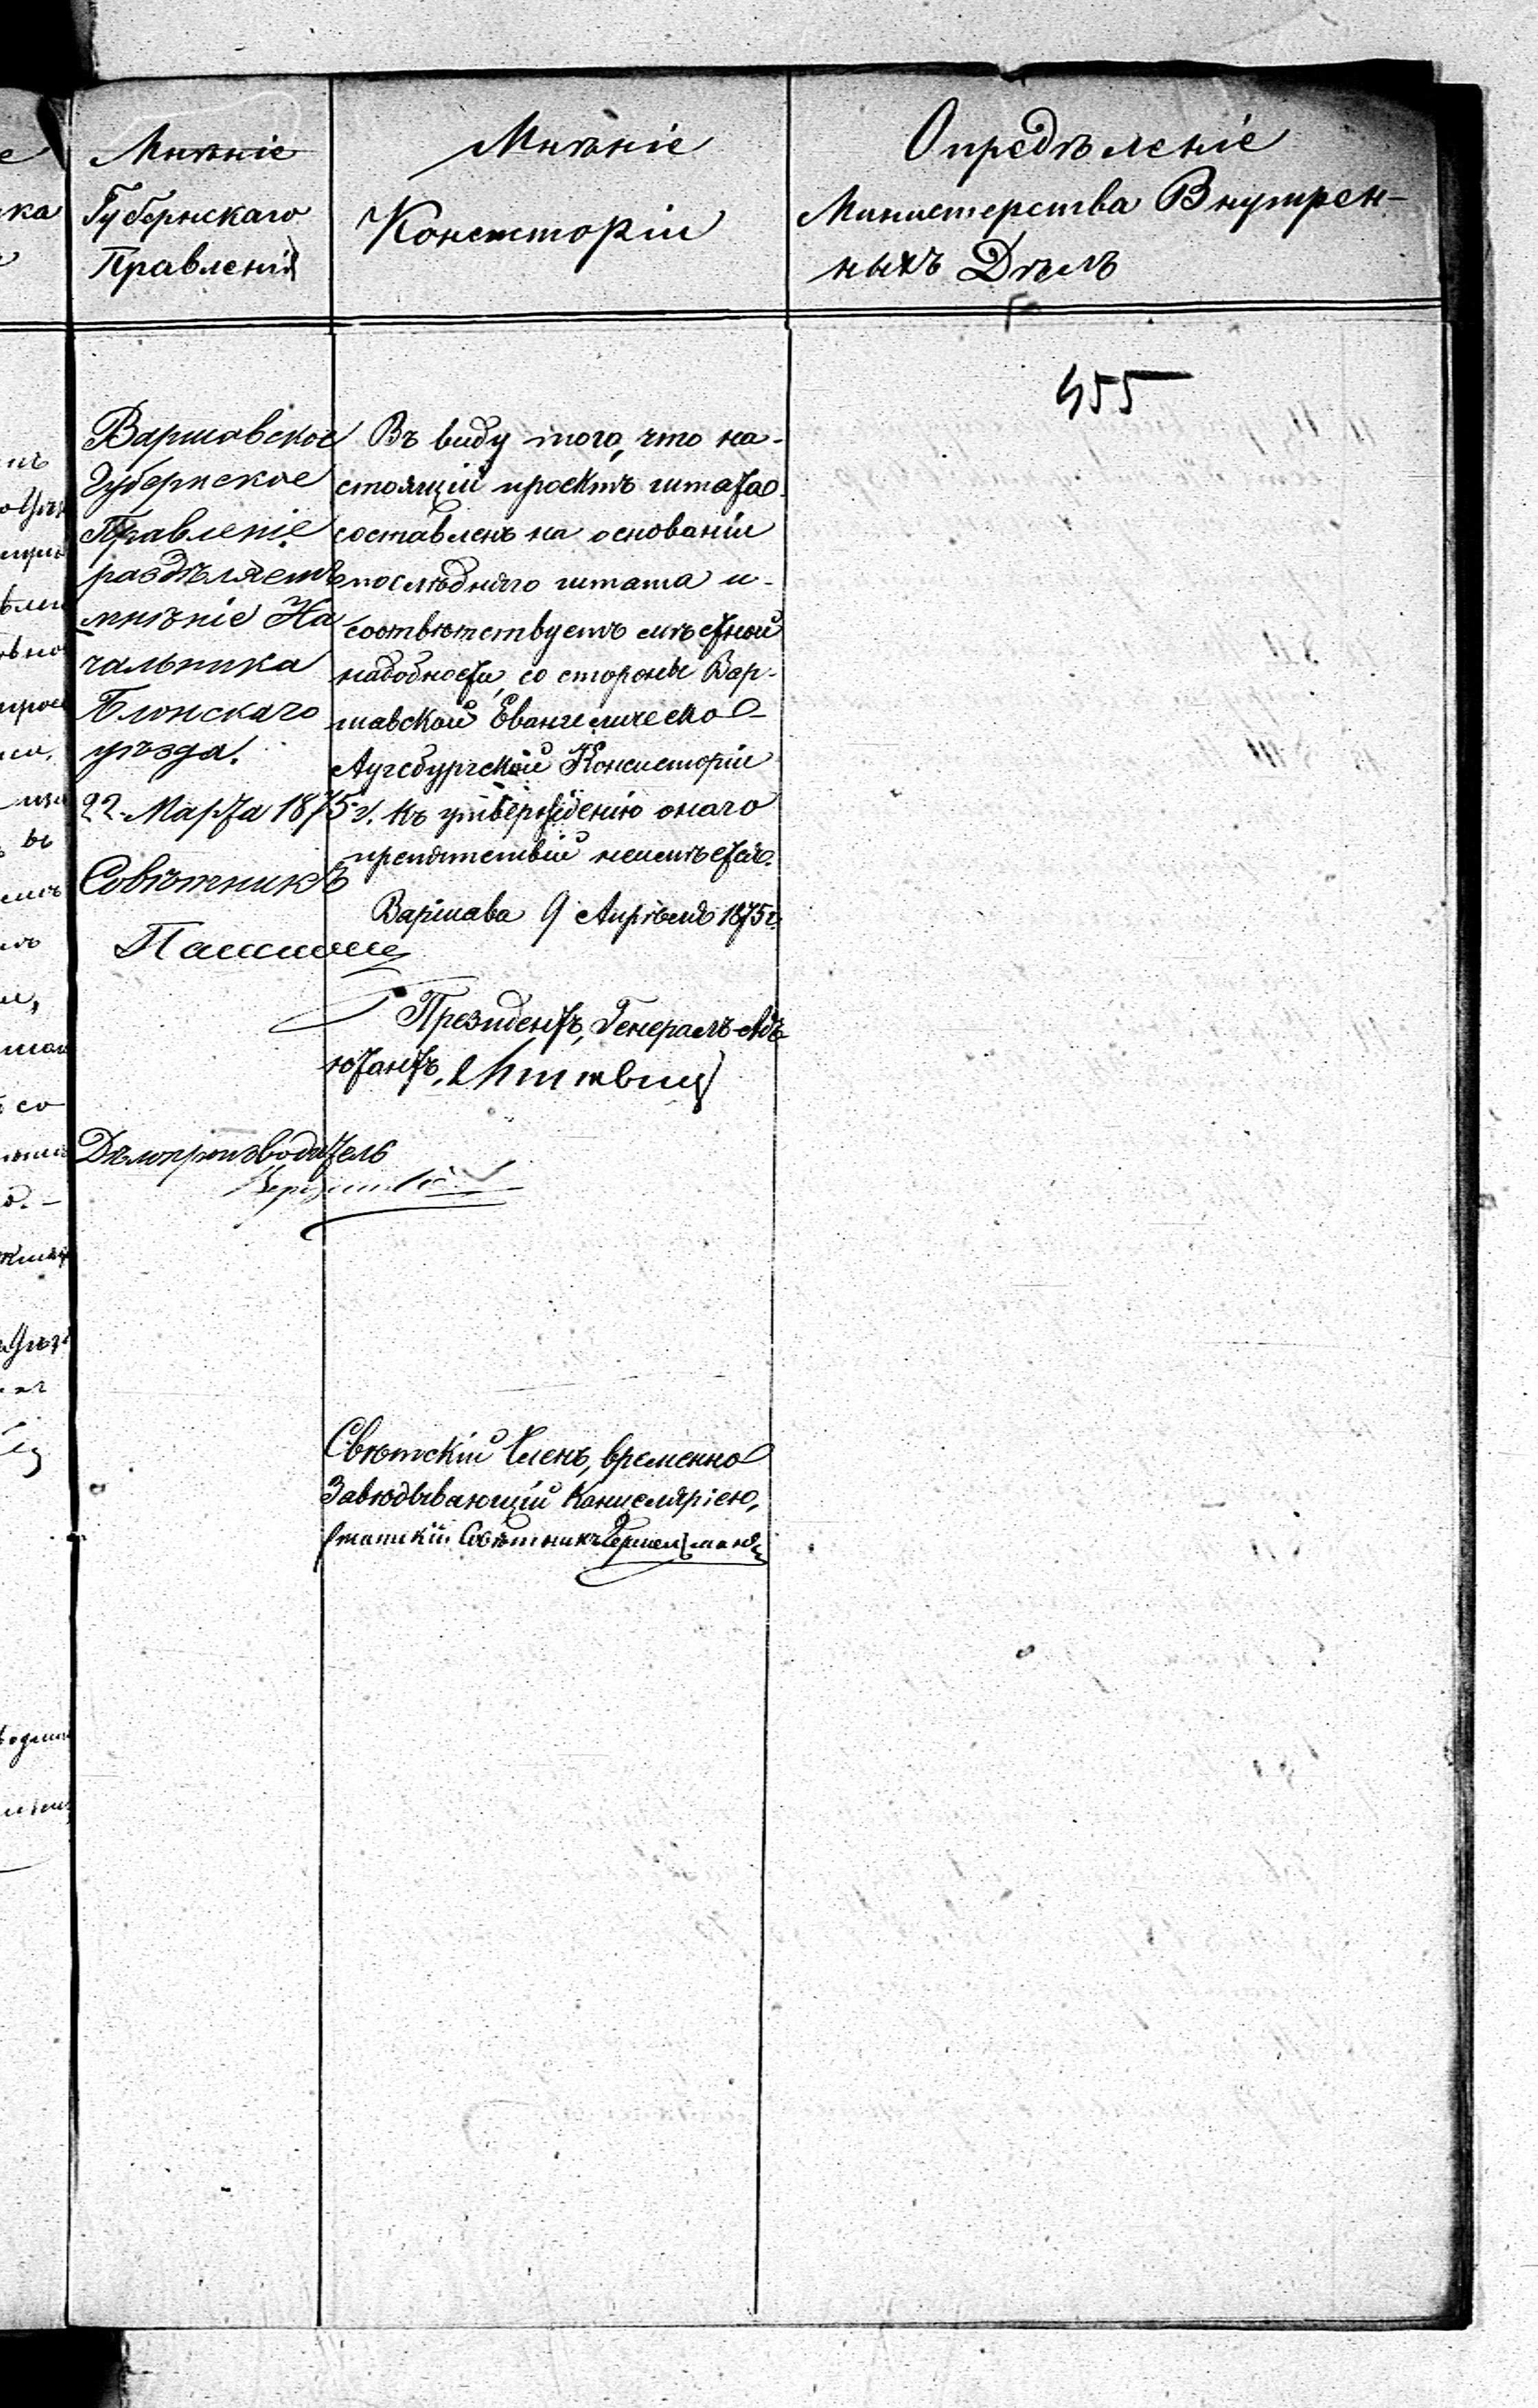 Мнѣніе
Губернскаго
Правленія
Мнѣніе
Консисторіи
Опредѣленіе
Министерства Внутрен-
ныхъ Дѣлъ
455
Варшавское
Губернское
Правленіе
раздѣляетъ
мнѣніе На
чальника
Блонскаго
уѣзда.
22 Марта 1875 г.
Совѣтникъ
Дѣлопроизводитель
Въ виду того, что на-
стоящій проектъ штата
составленъ на основаніи
послѣдняго штата и
соотвѣтствуетъ мѣстной
надобности, со стороны Вар-
шавской Евангелическо-
Аугсбургской Консисторіи
къ утвержденію онаго
препятствій неимѣется.
Варшава 9 Апрѣля 1875 г.
Президентъ, Генералъ-Адъ
ютантъ,
Свѣтскій Членъ, временно
Завѣдывающій Канцеляріею,
Статскій Совѣтникъ